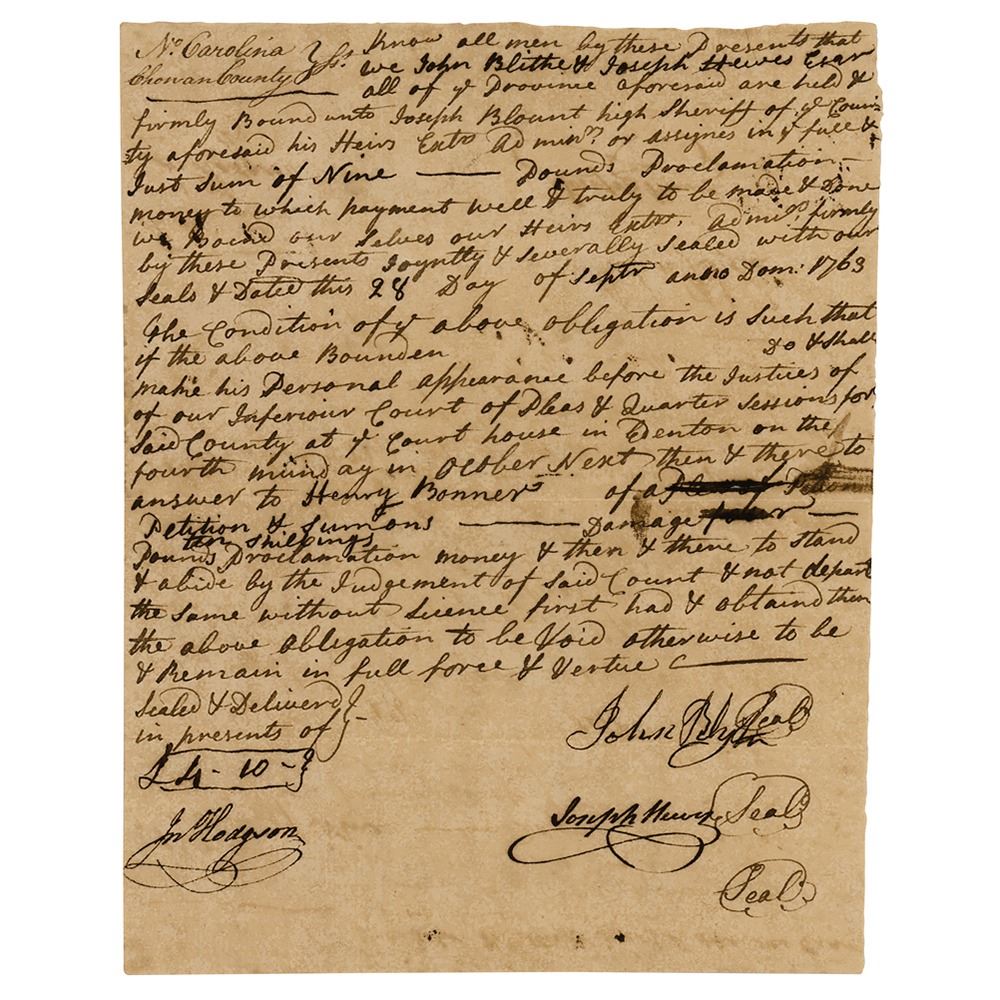 No. Carolina } ss. Know all men by these Presents that
Chowan County } we John Blithe & Joseph Hewes Esqr
all of ye Province aforesaid are held &
firmly Bound unto Joseph Blount high Sheriff of ye Coun-
ty aforesaid his Heirs Extrs Adminrs or assignes in ye full &
Just Sum of Nine —— Pounds Proclamation
money to which payment well & truly to be made & Done
we Bound our Selves our Heirs Extrs. Adminrs firmly
by these Presents Joyntly & Severally Sealed with our
Seals & Dated this 28 Day of Septr anno Dom: 1763
The Condition of ye above obligation is Such that
if the above Bounden Do & Shall
make his Personal appearance before the Justices of
of our Inferiour Court of Pleas & Quarter Sessions for
Said County at ye Court house in Edenton on the
fourth munday in October Next then & there to
answer to Henry Bonner of a
Petition & Sumons —— Damage ——
ten shillings
Pounds Proclamation money & then & there to Stand
& abide by the Judgement of Said Court & not depart
the Same without Licence first had & obtaind then
the above Obligation to be Void otherwise to be
& Remain in full force & Vertue
Sealed & Deliverd }
in presents of }
John Blyth Seal
£4-10-
Joseph Hewes Seal
Jno Hodgson
Seal